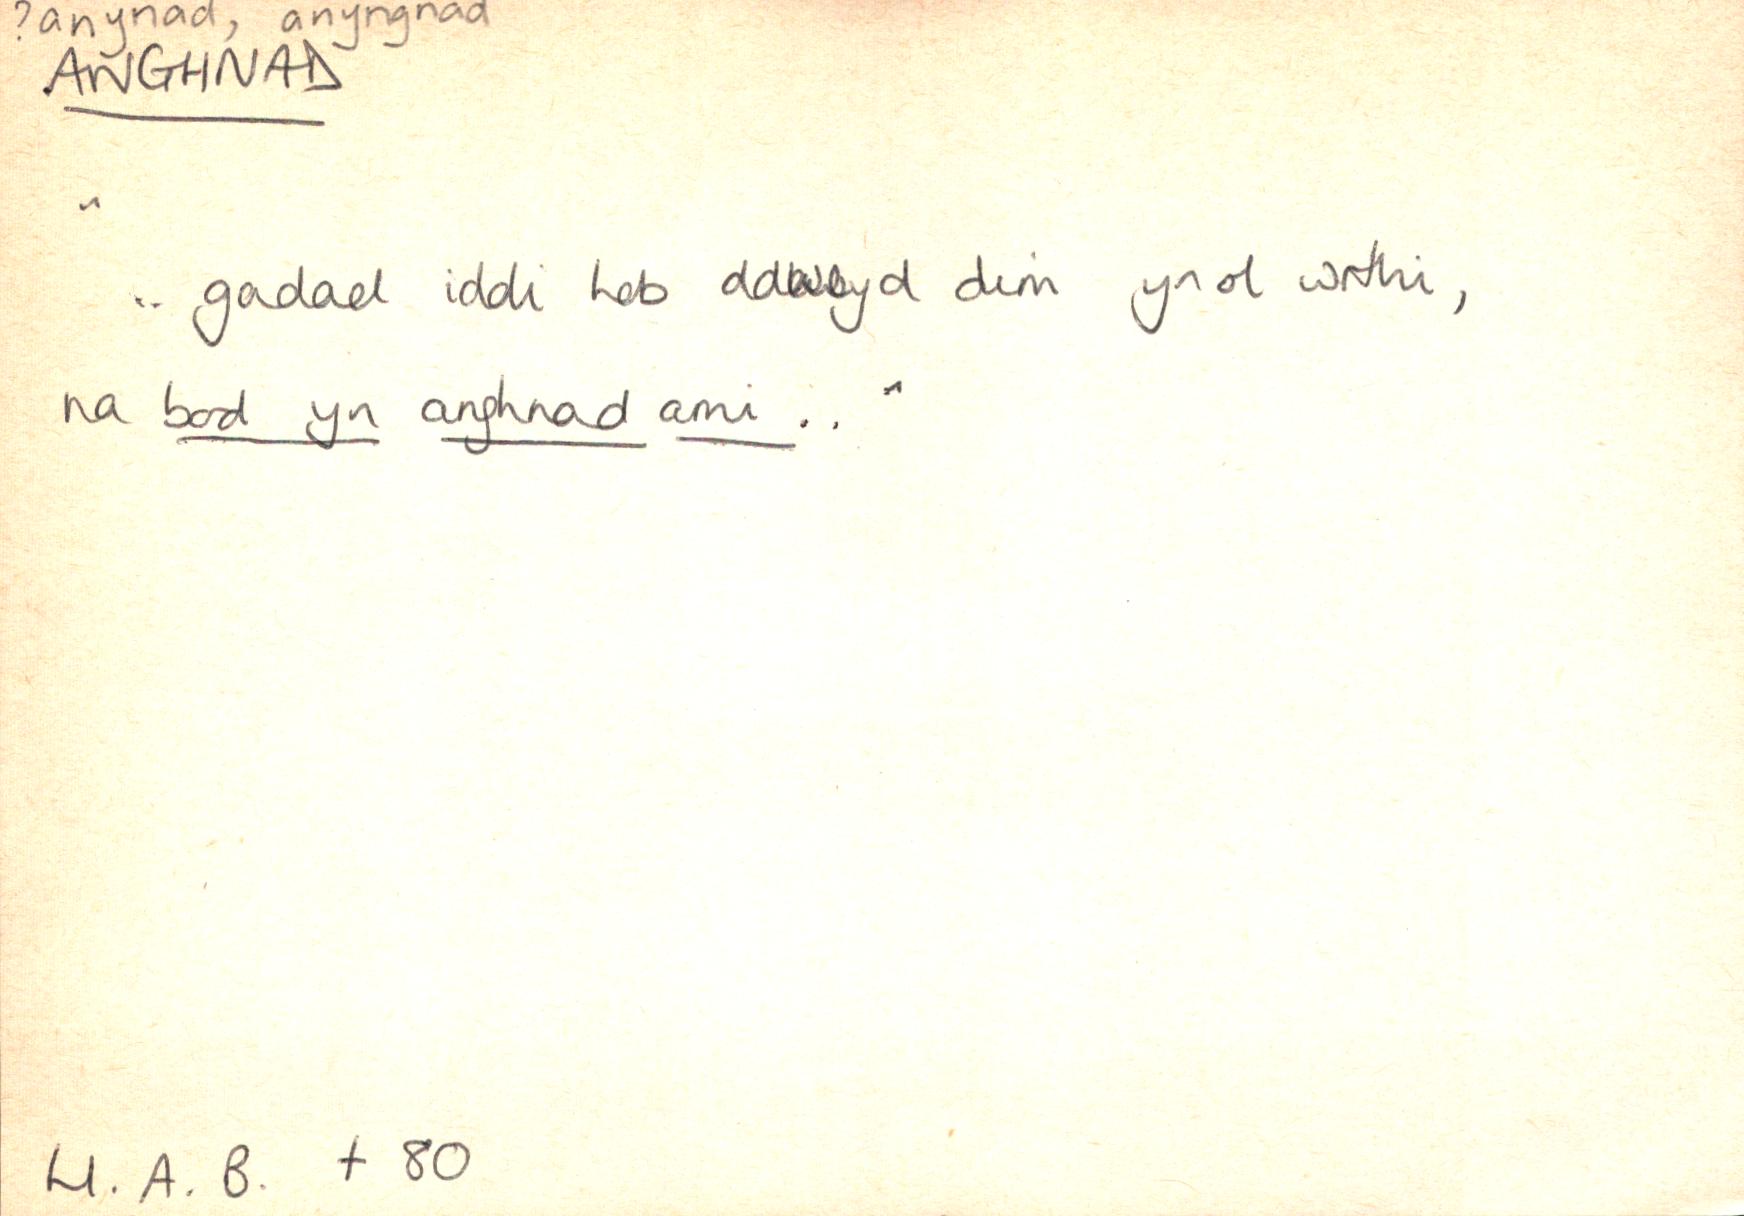 ?anynad, anyngnad
ANGHNAD
"
.. gadael iddi heb ddweyd dim yn ol wrthi,
na bod yn anghnad ami .. "
Ll. A. B. + 80